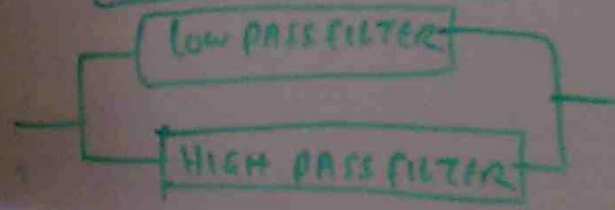 Low PASS FILTER
HIGH PASS FILTER